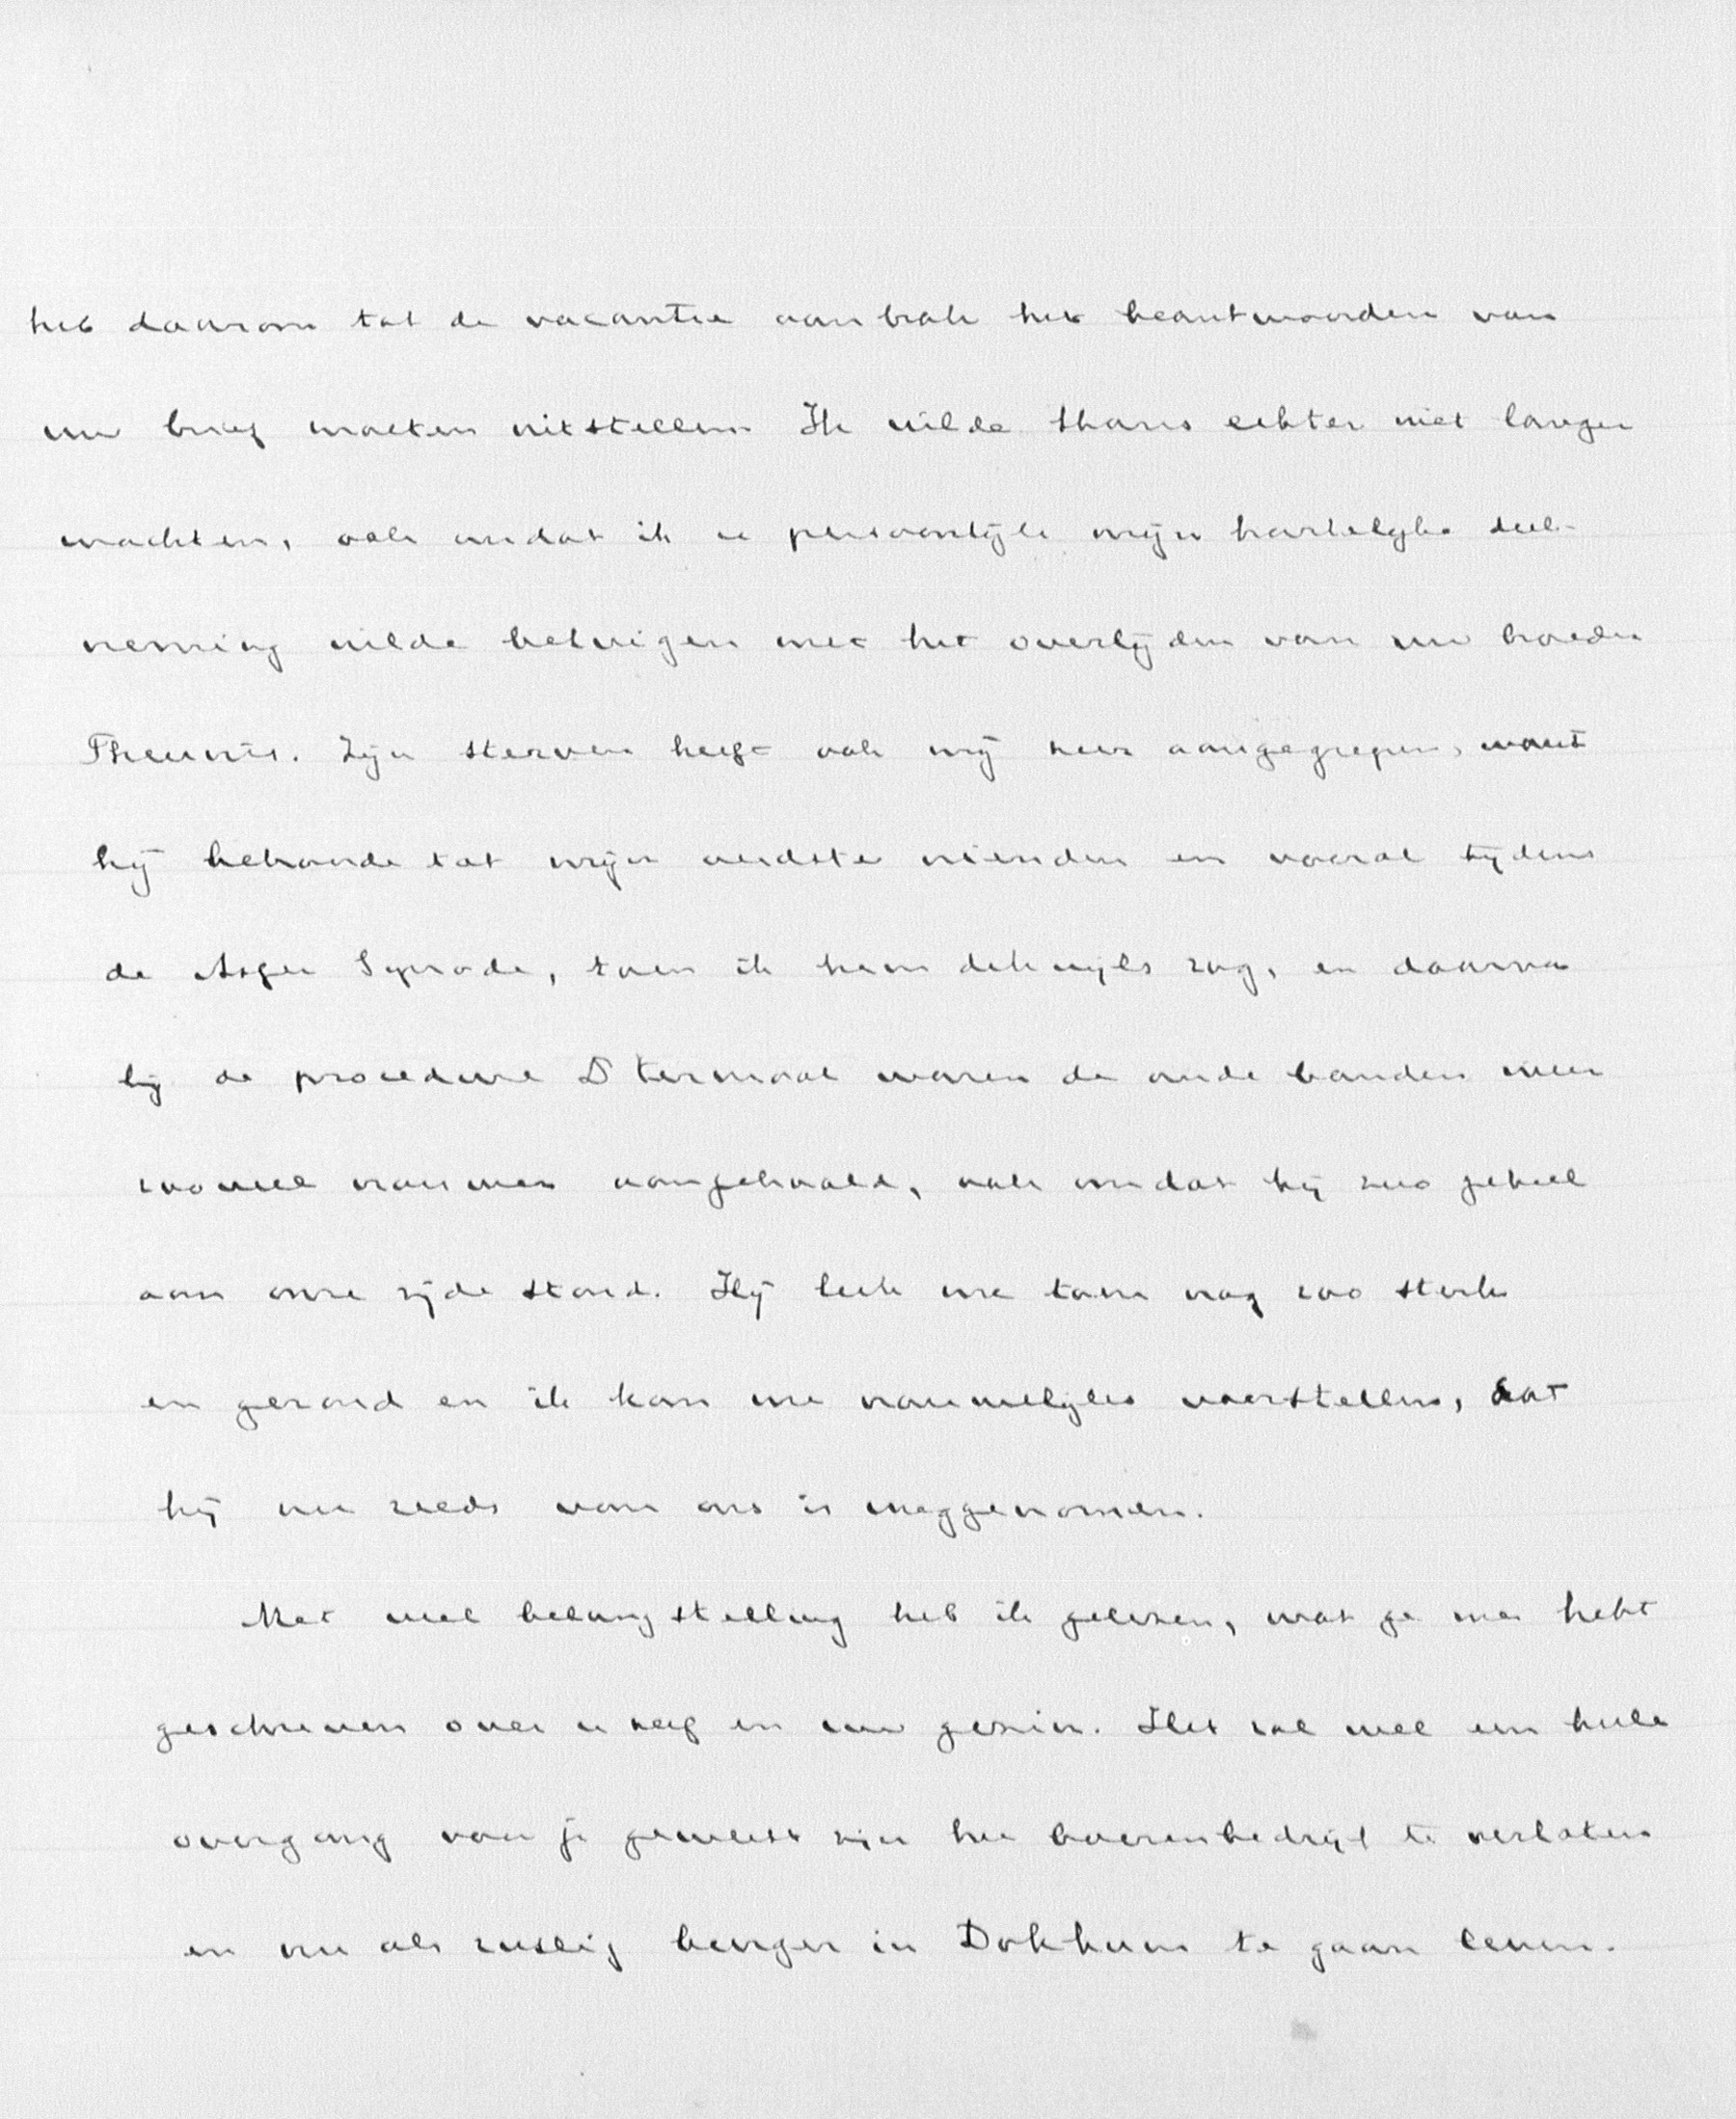 heb daarom tot de vacantie aanbrak het beantwoorden van
uw brief moeten uitstellen. Ik wilde thans echter niet langer
wachten, ook omdat ik u persoonlijk mijn hartelijke deel-
neming wilde betuigen met het overlijden van uw broeder
Theunis. Zijn sterven heeft ook mij zeer aangegrepen, want
hij behoorde tot mijn oudste vrienden en vooral tijdens
de Asser Synode, toen ik hem dikwijls zag, en daarna
bij de procedure D termaat waren de oude banden weer
zooveel nauwer aangehaald, ook omdat hij zoo geheel
aan onze zijde stond. Hij leek me toen nog zoo sterk
en gezond en ik kan me nauwelijks voorstellen, dat
hij nu reeds van ons is weggenomen.
Met veel belangstelling heb ik gelezen, wat je me hebt
geschreven over u zelf en uw gezin. Het zal wel een heele
overgang voor je geweest zijn het boerenbedrijf te verlaten
en nu als rustig burger in Dokkum te gaan leven.